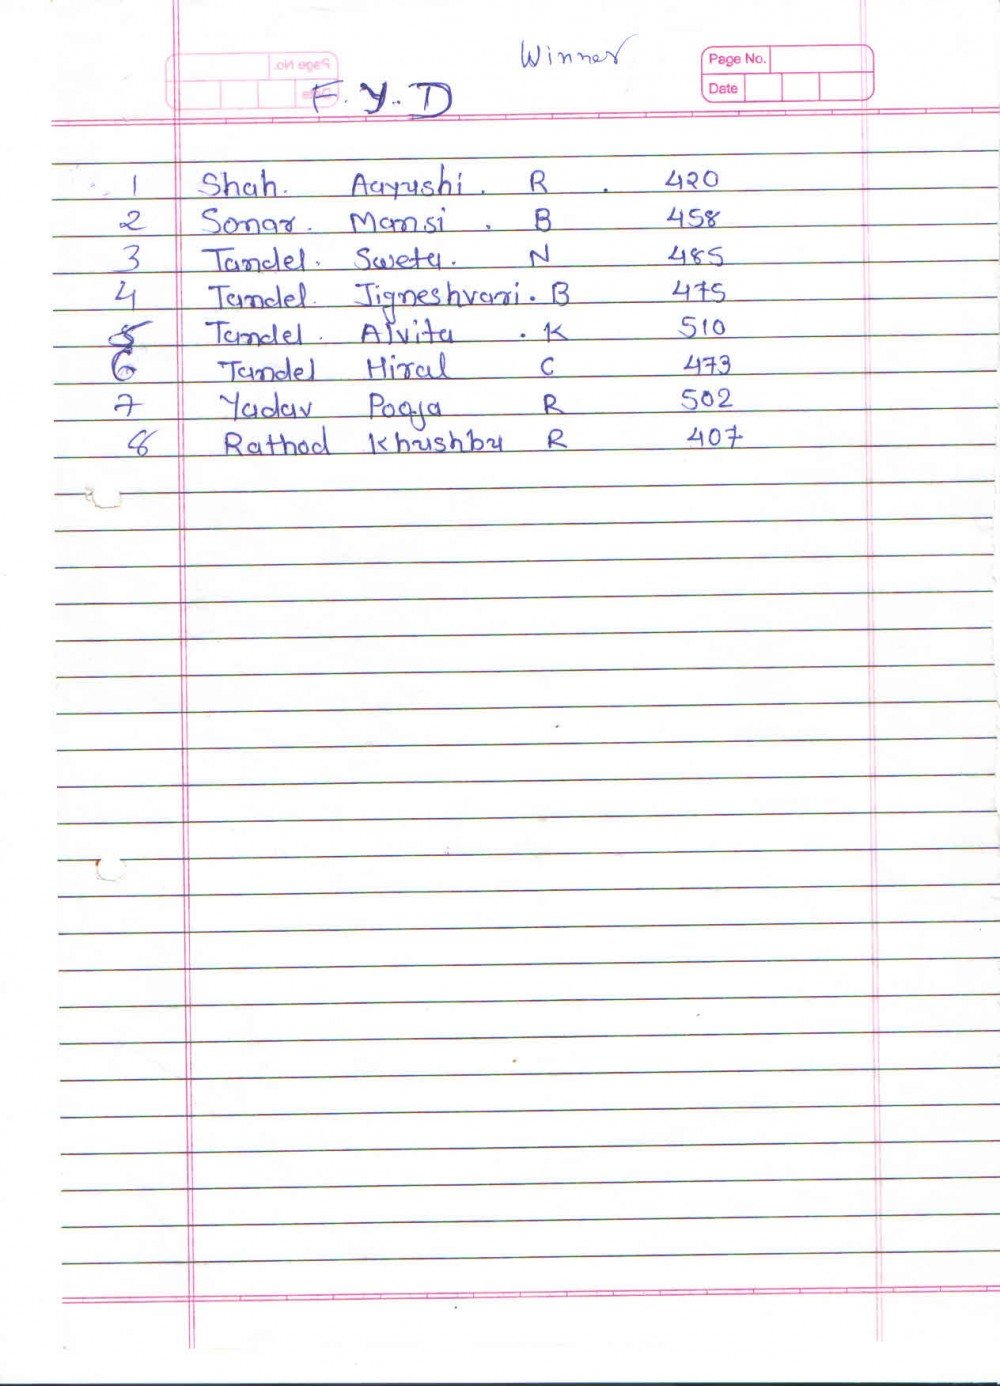 Winner
Page No.
Date
F.Y.D
1 Shah. Aayushi. R. 420
2 Sonar. Mansi. B 458
3 Tandel. Sweta. N 485
4 Tandel. Jigneshvari. B 475
5 Tandel. Alvita. K 510
6 Tandel Hiral C 473
7 Yadav Pooja R 502
8 Rathod Khushbu R 407